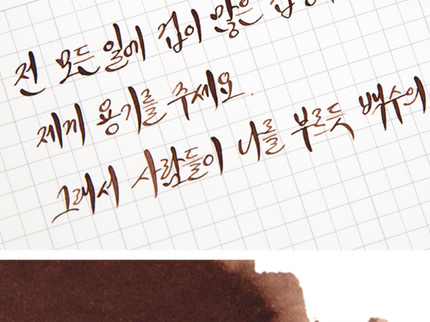 전 모든 일에 겁이 많은
제게 용기를 주세요.
그래서 사람들이 나를 부르듯 배수의